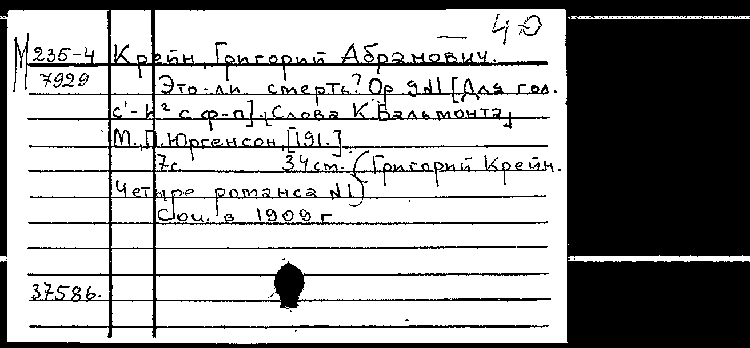 — 40
М 235-4 Крейн, Григорий Абрамович.
7929 Это-ли смерть? Op. 9 №1 [Для гол.
с ф-п]. [Слова К. Бальмонта]
М., П. Юргенсон, [191.].
7с. 34 см. (Григорий Крейн.
Четыре романса №1)
Соч. в 1909 г
37586.